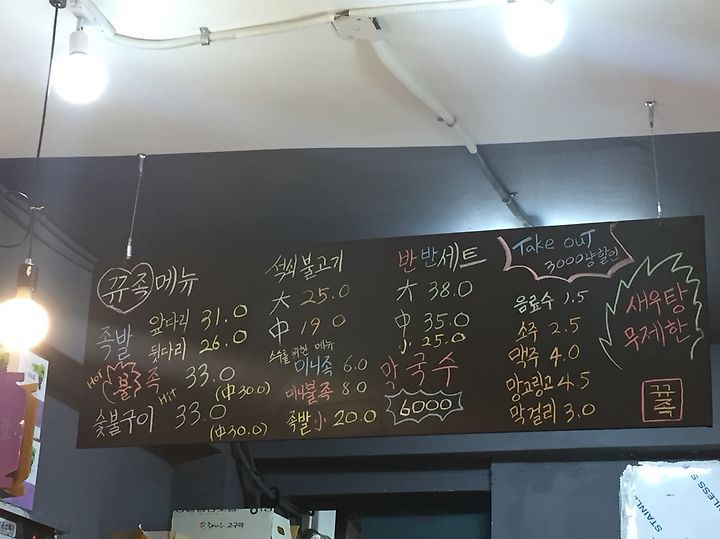 뀨족 메뉴
족발 앞다리 31.0
뒷다리 26.0
Hot 불족 33.0
Hit (中30.0)
숯불구이 33.0
(中30.0)
석쇠불고기
大 25.0
中 19.0
소수를 위한 메뉴
미니족 6.0
미니불족 8.0
족발小 20.0
반반세트
大 38.0
中 35.0
小 25.0
막국수
6000
Take ouT
3000냥할인
음료수 1.5
소주 2.5
맥주 4.0
망고링고 4.5
막걸리 3.0
새우탕
무제한
뀨
족
고구마
STAINLESS S
STAINL